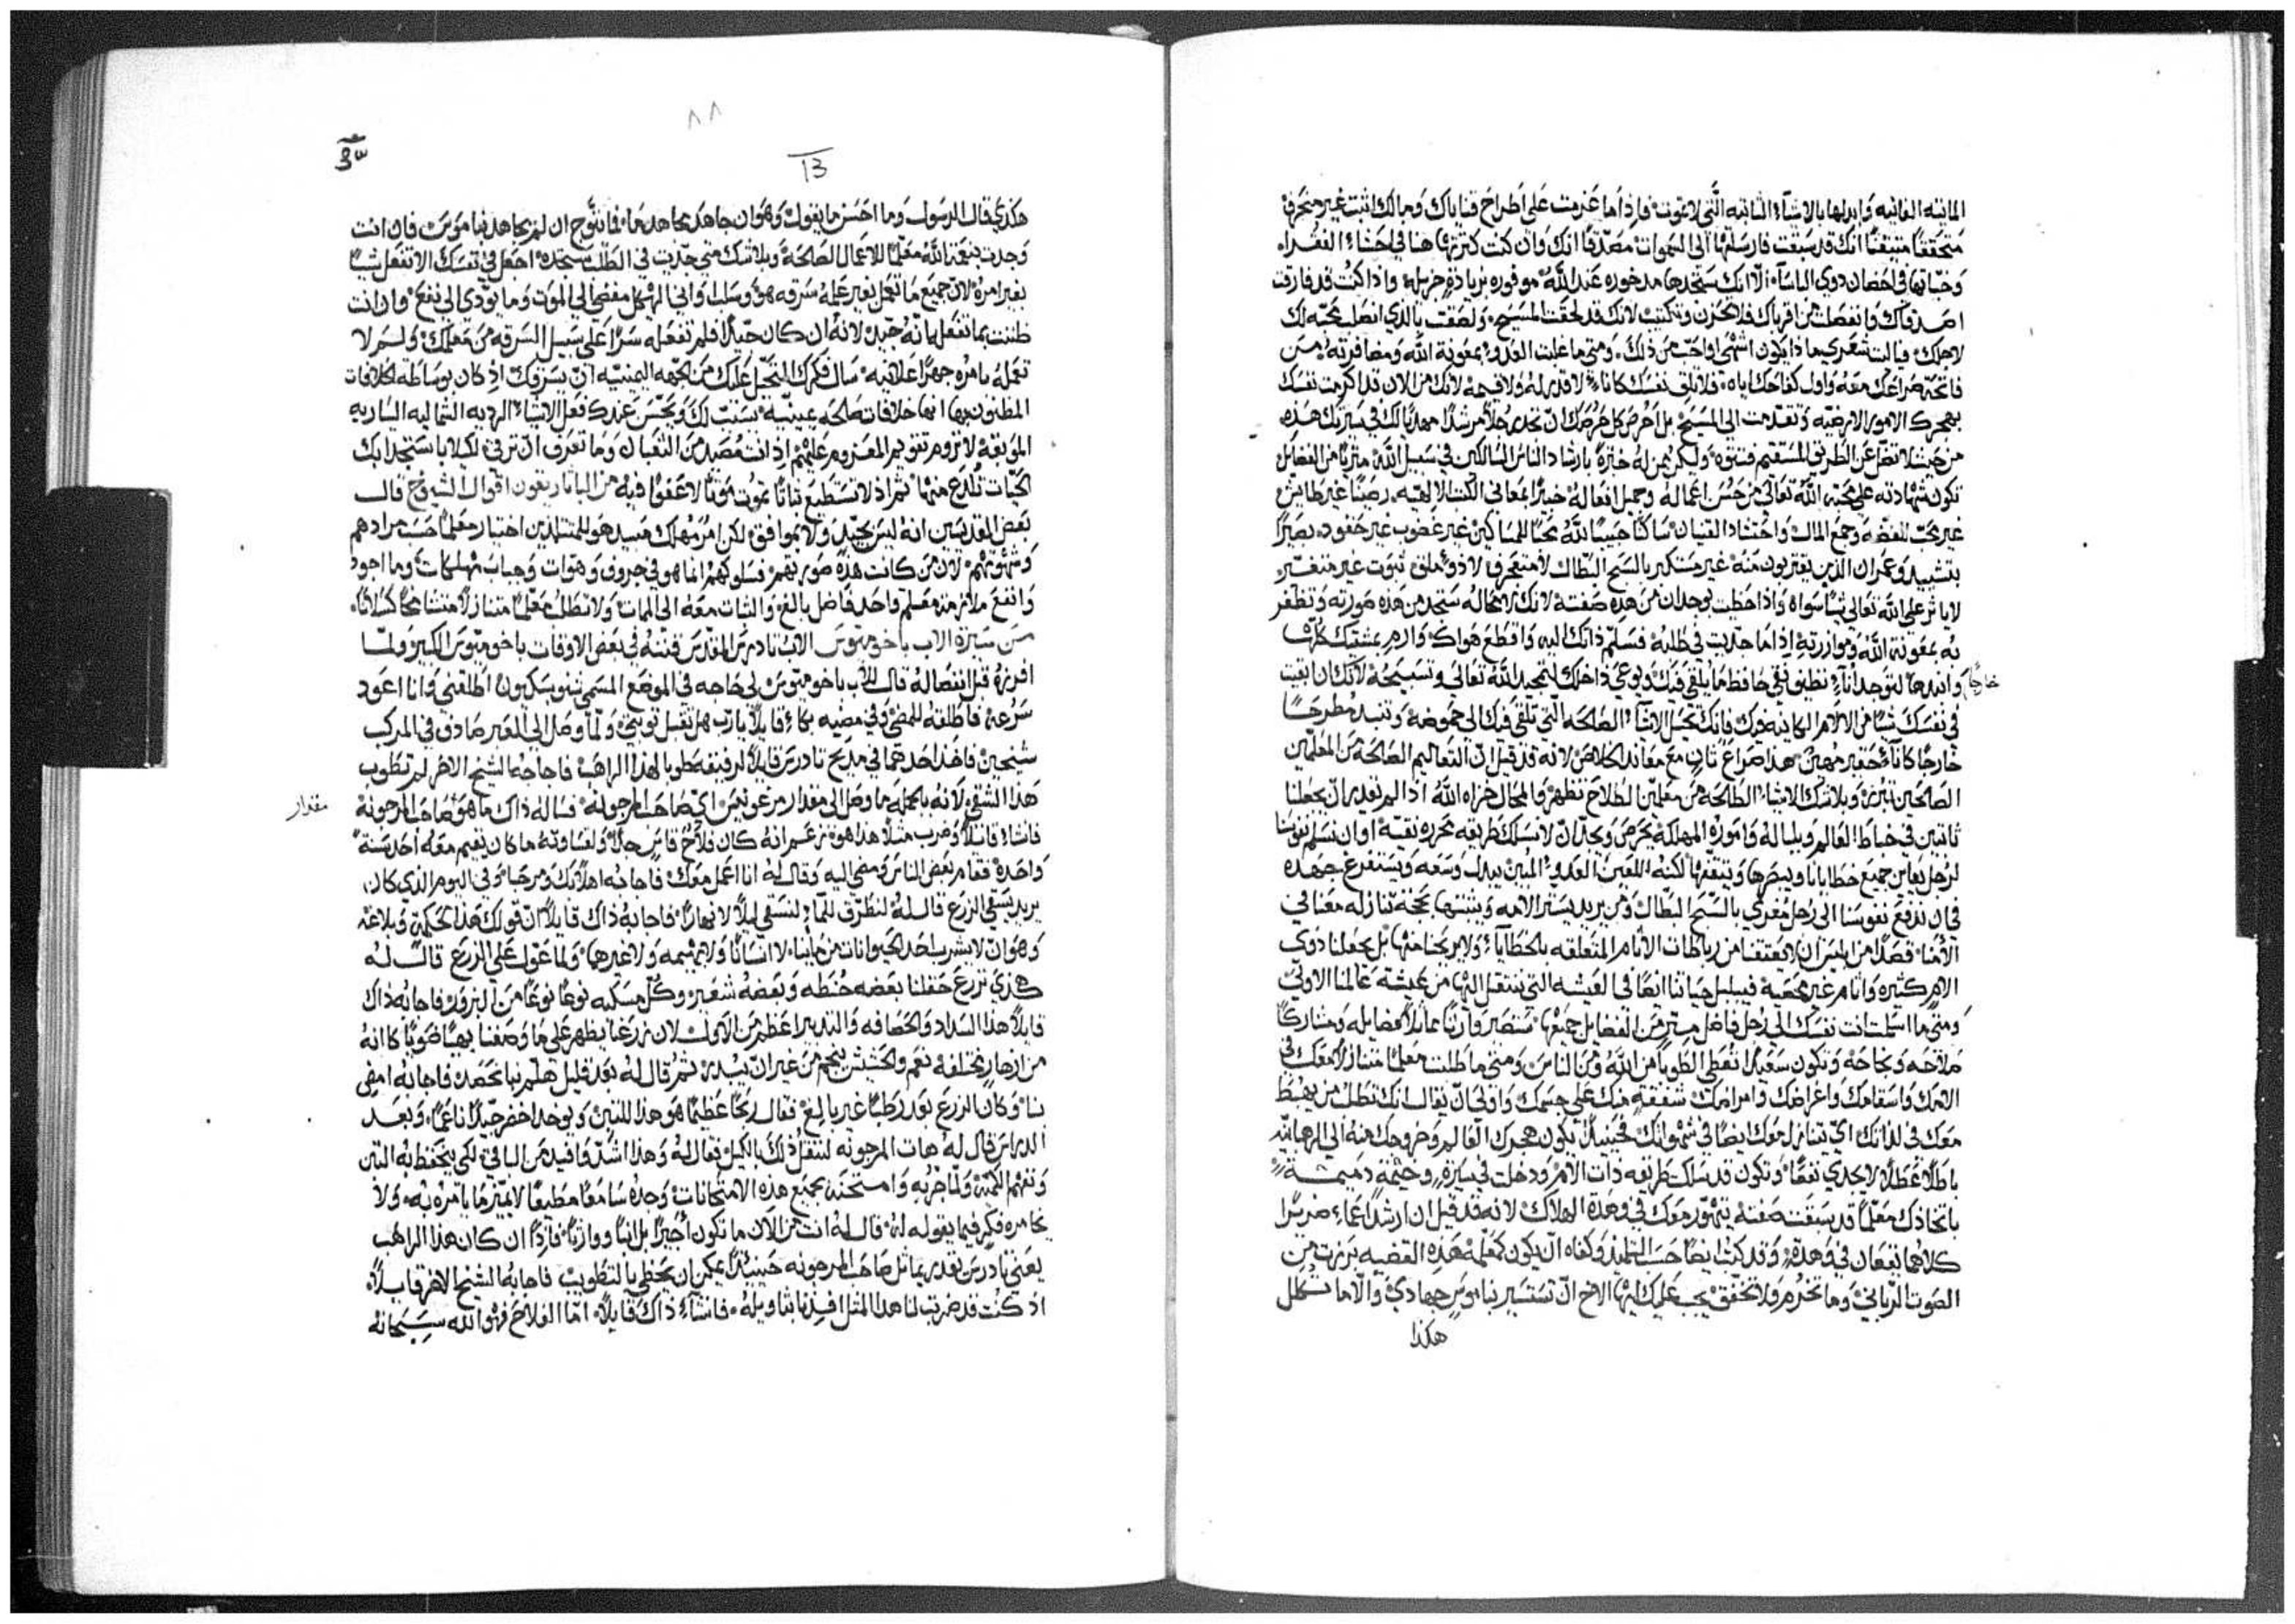 المايته الفانيه وابدلها بالاشيآء الثابته الَّتي لا تموت فاذا ما عزمت على اطراح قناياك ومالك اثبت غير منحرف
متحققًا متيقنًا انك قد سبقت فارسلتها الى السموات مصدقًا انك وان كنت كنزتها هنا في احضاء الفقراء
وخبّاتها في احضان ذوي الباسآء الّا انك ستجدها مدخوره عند الله موفوره بزيادةٍ جزيله واذا كنت قد فارقت
اصدقاك وانفصلت من اقرباك فلا تحزن وتكتيب لانك قد لحقت المسيح ولصقت بالذي انفصلت محبّه لك
لاجلك فياليت شعري ماذا يكون اشهى واحب من ذلك ومتى ما غلبت العدو بمعونة الله ومضافرته من
فاتحة صراعك معه واول كفاحك اياه فلا تلقِ نفسك كاناء لا قدر له ولا قيمه لانك من الان قد اكرمت نفسك
بهجرك الامور الارضيّه وتقدمت الى المسيح بل احرص كل حرصك ان تجد رجلاً مرشدًا مهديًا لك في سيرتك هذه
من حيث لا تضل عن الطريق المستقيم فتتوه وليكن ممن له خبرة بارشاد الناس السالكين في سبيل الله مثريًا من الفضايل
تكون شهادته على محبّة الله تعالى من حسن اعماله وجميل افعاله خبيرًا بمعاني الكتب الالهيّه رصينًا غير طايش
غير محبّ للفضه وجمع المال واحتشاد القنيان ساكنًا حبيبًا لله محبًا للمساكين غير غضوب غير حقود بصيرًا
بتشييد وعمران الذين يقتربون منه غير مستكبر بالسبح البطّال لا متعجرف لا ذو ملق ثبوت غير متغيّر
لا ياثر على الله تعالى شيًا سواه واذا حظيت بوجدان من هذه صفته لانك لا محاله ستجد من هذه صورته وتظفر
به بمعونة الله وموازرته اذا ما جدّيت في طلبه فسلّم ذاتك اليه واقطع هواك وارمِ بمشيّتك كلّها
وانبدها لتوجد انآءً نظيفًا نقي حافظ ما يلقى فيك ويوعى داخلك لتمجيد الله تعالى وتسبيحه لانك ان بقيت
خارجًا
في نفسك شيًا من الالام الكاينه فيك فانك تحيل الاشيآء الصالحه التي تلقى فيك الى حموضه وتنبد مطرحًا
خارجًا كانآءٍ حقير مهين هذا صراع ثانٍ مع معاند الخلاص لانه قد قيل ان التعاليم الصالحة من المعلمين
الصالحين تبرز وبلا شك الاشياء الطالحه من معلمين الطلاح تظهر والمحال خزاه الله اذا لم يقدر ان يجعلنا
ثابتين في خباط العالم وبلباله واموره المهلكة يحرص ويجد ان لا نسلك طريقه محرره نقيه او ان نسلم نفوسنا
لرجل يعاين جميع خطايانا ويبصرها ويتيقنها لكنه اللعين العدو المبين يبدل وسعه ويستفرغ جهده
في ان ندفع نفوسنا الى رجل مغري بالسبح البطّال ومن يريد يستر الامه ويثبتها بحجة تنازله معنا في
الامنا قصدًا من ابليس ان لا يعتقنا من رباطات الاثام المتعلقه بالخطايا ولا يريحنا منها بل يجعلنا ذوي
الام كثيره واثام غير محصيه فيبلبل حياتنا ايضًا في العيشه التي ننتقل اليها من عيشة عالمنا الاولى
ومتى ما اسلمت انت نفسك الى رجل فاضل مثرٍ من الفضايل جميعها ستصير وارثًا عاملاً لفضايله ومشاركًا
صلاحه ونجاحه وتكون سعيدًا تعطى الطوبا من الله ومن الناس ومتى ما طلبت معلمًا متنازلاً معك في
الامك واسقامك واغراضك وامراضك شفقةً منك على جسمك واولى ان يقال انك تطلب من يهبط
معك في لذاتك اي تتنازل معك ايضًا في شهواتك فحينيذٍ يكون هجرك العالم وخروجك منه الى الرهبانيّه
باطلاً عطلاً لا يجدي نفعًا وتكون قد سلكت طريقه ذات الام ودخلت في سيرة وخيمةٍ دميمة
باتخاذك معلّمًا قد سبقت صفته يتهوّر معك في وهدة الهلاك لانه قد قيل ان ارشد اعماء ضريرًا
كلاهما يقعان في وهدة وقد كتب ايضًا حسب التلميذ وكفاه ان يكون كمعلمه هذه القضيه برزت من
الصوت الرباني وما تخرم ولا تخفق يجب عليك ايها الاخ ان تستسير بناموس جهادي والّا ما تكلل
هكذا
٨٨
13
هكذي قال الرسول وما احسن ما يقول وهو ان جاهد مجاهد ما فما يتوج ان لم يجاهد بناموس فان انت
وجدت بنعمة الله معلمًا للاعمال الصالحة وبلا شك متى جدّيت في الطلب ستجده اجعل في نفسك الا تفعل شيًا
بغير امره لان جميع ما تعمل بغير علمه سرقه هو وسلب واني الهلك مفضي الى الموت وما يؤدي الى نفع وان انت
ظننت بما تفعل بانه جيد لانه ان كان جيدًا فلم تفعله سرًا على سبيل السرقه من معلمك ولم لا
تعمله بامره جهرًا علانيه سال فكرك المتحيل عليك من الجهه اليمينيّه ان يسرقك اذ كان بوساطه الخلافات
المظنون بها انها خلافات صالحه يمينيّه يسنت لك ويحسن عندك فعل الاشياء الرديه الشماليه اليساريه
الموبقة لا تروم تقويم المعزوم عليهم اذ انت مُصيد من الثعبان وما تعرف ان ترقي لكلا يستجدا بك
الحيات تلدع منها ثم اذ لا تستطيع ثباتًا تموت موتًا لا عفوا فيه من الباتا ريقون اقوال الشيوخ قال
بعض القديسين انه ليس بجيّد ولا بموافق لكن امر مهلك مبيد هو للمبتديين اختيار معلمًا حسب مرادهم
وشهوتهم لان من كانت هذه صورتهم فسلوكهم انما هو في جروف وهوات وجباب مهلكات وما اجود
وانفع ملازمة معلم واحد فاضل بالغ والثبات معه الى الممات ولا تطلب معلمًا متنازلاً متشامخًا كسلانًا
من سيرة الاب باخوميوس الاب تادرس المقدس قتنه في بعض الاوقات باخوميوس الكبير ولما
افرزه قبل انفصاله قال للاب باخوميوس لي حاجه في الموضع المسمى شنوبسكيون اطلقني وانا اعود
سرعة فاطلقه للمضي وفي مضيه بكاء قايلاً يا رب هل تقبل توبتي ولما وصل الى المعبر صادف في المركب
شيخين فاخد احدهما في مديح تادرس قايلاً لرفيقه طوبا لهذا الراهب فاجابه الشيخ الاخر لم تطوب
هذا الشقي لانه بالجمله ما وصل الى مقدار مرغوبين اي صاحب المرجونة فساله ذاك ما هو صاحب المرجونة
مقدار
فانشاء قايلاً وضرب مثلاً هذا هو نزعم انه كان فلاح قاسٍ جدًا ولقساوته ما كان يقيم معه احد سنة
واحده فقام بعض الناس ومضى اليه وقال له انا اعمل معك فاجابه اهلاً بك ومرحبا وفي اليوم الذي كان
يريد يسقي الزرع قال له لنطرق للماء لنسقي ليلاً لا نهارًا فاجابه ذاك قايلاً ان قولك هذا لحكمة وبلاغة
وهو ان لا يشرب احد الحيوانات من ماينا لا انسانًا ولا بهيمه ولا غيرهما ولما عوّل على الزرع قال له
هكذي تزرع حقلنا بعضه حنطه وبعضه شعير وكل سكبه نوعًا نوعًا من البزور فاجابه ذاك
قايلاً هذا السداد والحصافه والتدبير اعظم من الاول لان زرعنا يظهر على ما وصفنا بهيًا ضويًا كانه
من ازهار مختلفه نعم والحشيش ينجم من غير ان يبدر ثم قال له بعد قليل هلم بنا نحصد فاجابه امضي
بنا وكان الزرع بعد رطبًا غير بالغ فقال ربحًا عظيمًا هو هذا للتبن ويوخد اخضر جيدًا ناعمًا وبعد
الدراس قال له هات المرجونه لننقل ذلك بالكيل فقال له وهذا اشد وافيد من الباقي لكي يتحفظ به التبن
وتفهم الكميّة ولما جربه وامتحنه بجميع هذه الامتحانات وجده سامعًا مطيعًا لا يميّز ما يامره به ولا
يخامره فكر فيما يقوله له قال له انت من الان ما تكون اجيرًا بل ابنًا ووارثًا فاذًا ان كان هذا الراهب
يعني تادرس يقدر يماثل صاحب المرجونه حينيذًا يمكن ان يحظى بالتطويب فاجابه الشيخ الاخر قايلاً
اذ كنت قد ضربت لنا هذا المثل افيدنا بتاويله فانشاء ذاك قايلاً اما الفلاح فهو الله سبحانه